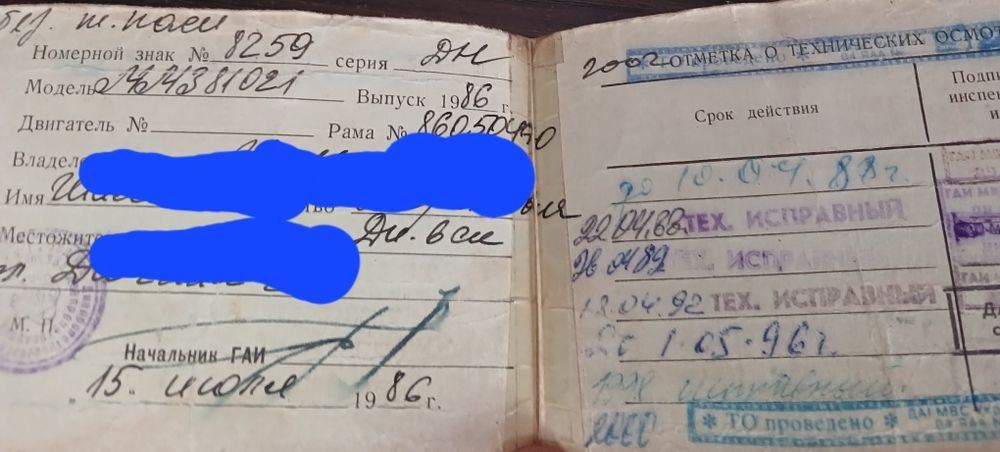 без т. паси
Номерной знак № 8259 серия ДН
Модель ММ381021 Выпуск 1986 г.
Двигатель № Рама № 860504
Владеле
Имя
Местожит Дн-вси
М. П.
Начальник ГАИ
" 15. июля 1986 г.
2002 ОТМЕТКА О ТЕХНИЧЕСКИХ ОСМОТ
Срок действия
Подпи
инспек
и
до 10.04.88г.
22.04.88. ТЕХ. ИСПРАВНЫЙ
ТЕХ. ИСПРАВНЫЙ
13.04.92 ТЕХ. ИСПРАВНЫЙ
До 1.05.96г.
1998 исправный
2000
* ТО проведено * ДАІ МВС